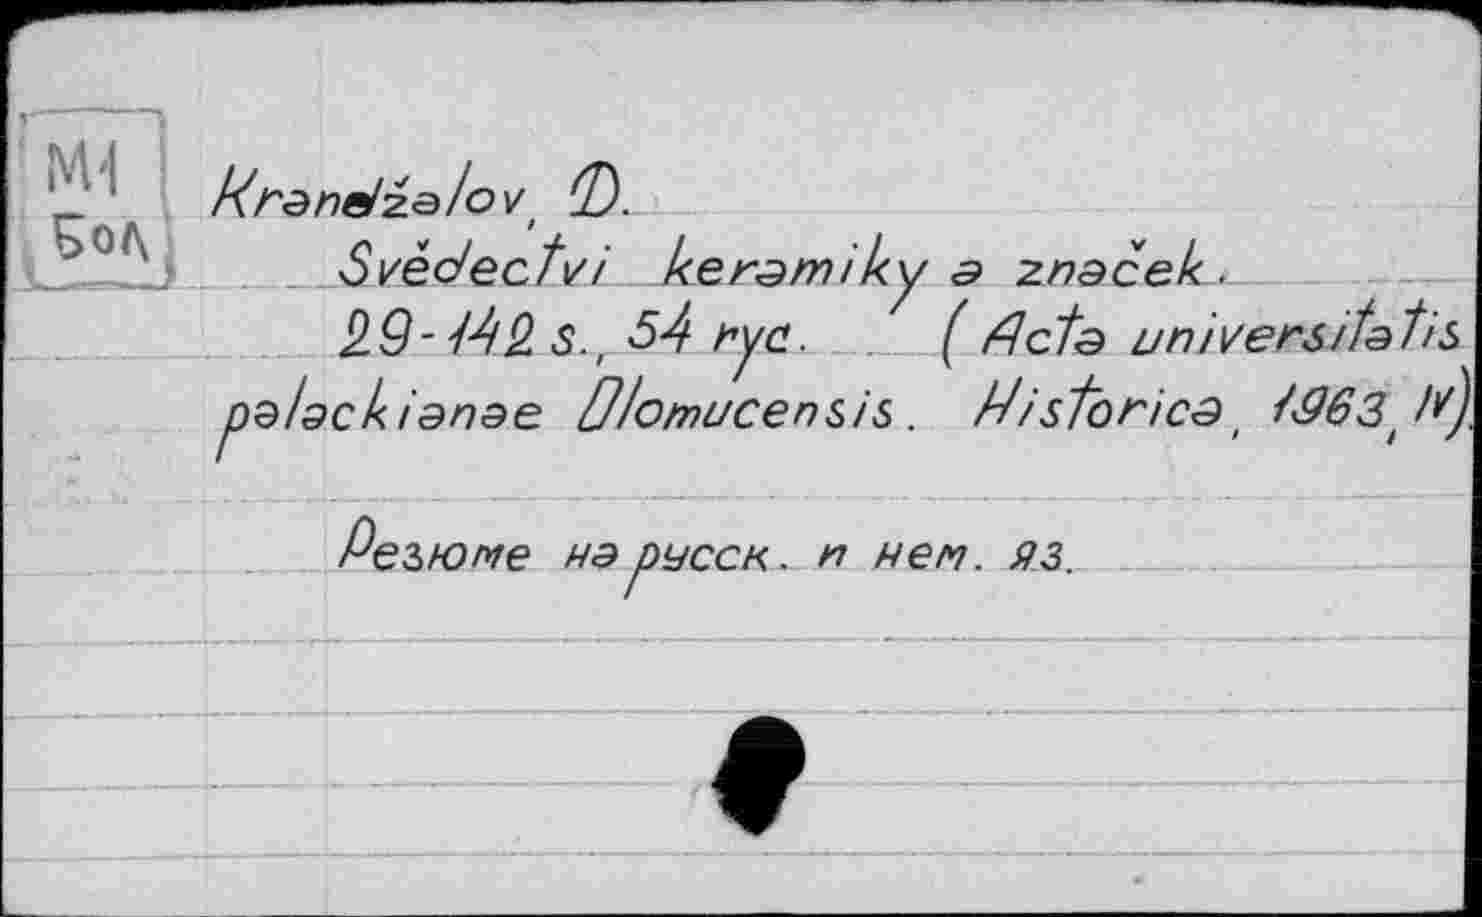 М1
Бол
Krandžalov, D.
Svědectvi keramiky a značek.
29-142 s., 54 ryc. (Acta universitatis
palackianae Olomucensis. Historica, 1963, IV).
Резюме на русск. и нем. яз.